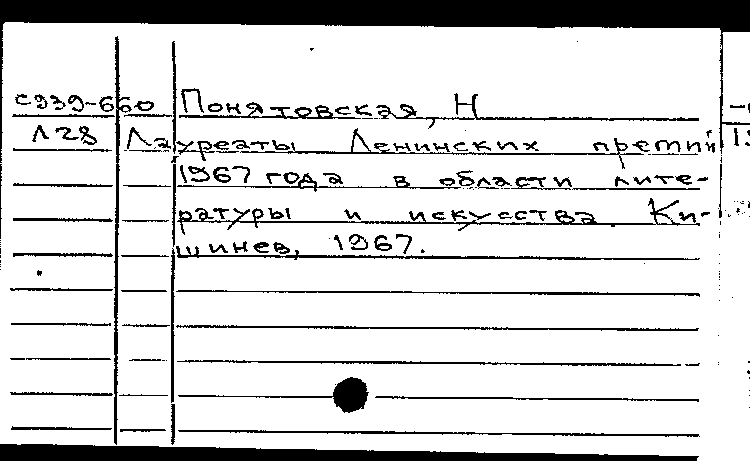 С939-660 Понятовская, Н
Л28 Лауреаты Ленинских премий
1967 года в области лите-
ратуры и искусства. Ки-
шинев, 1967.